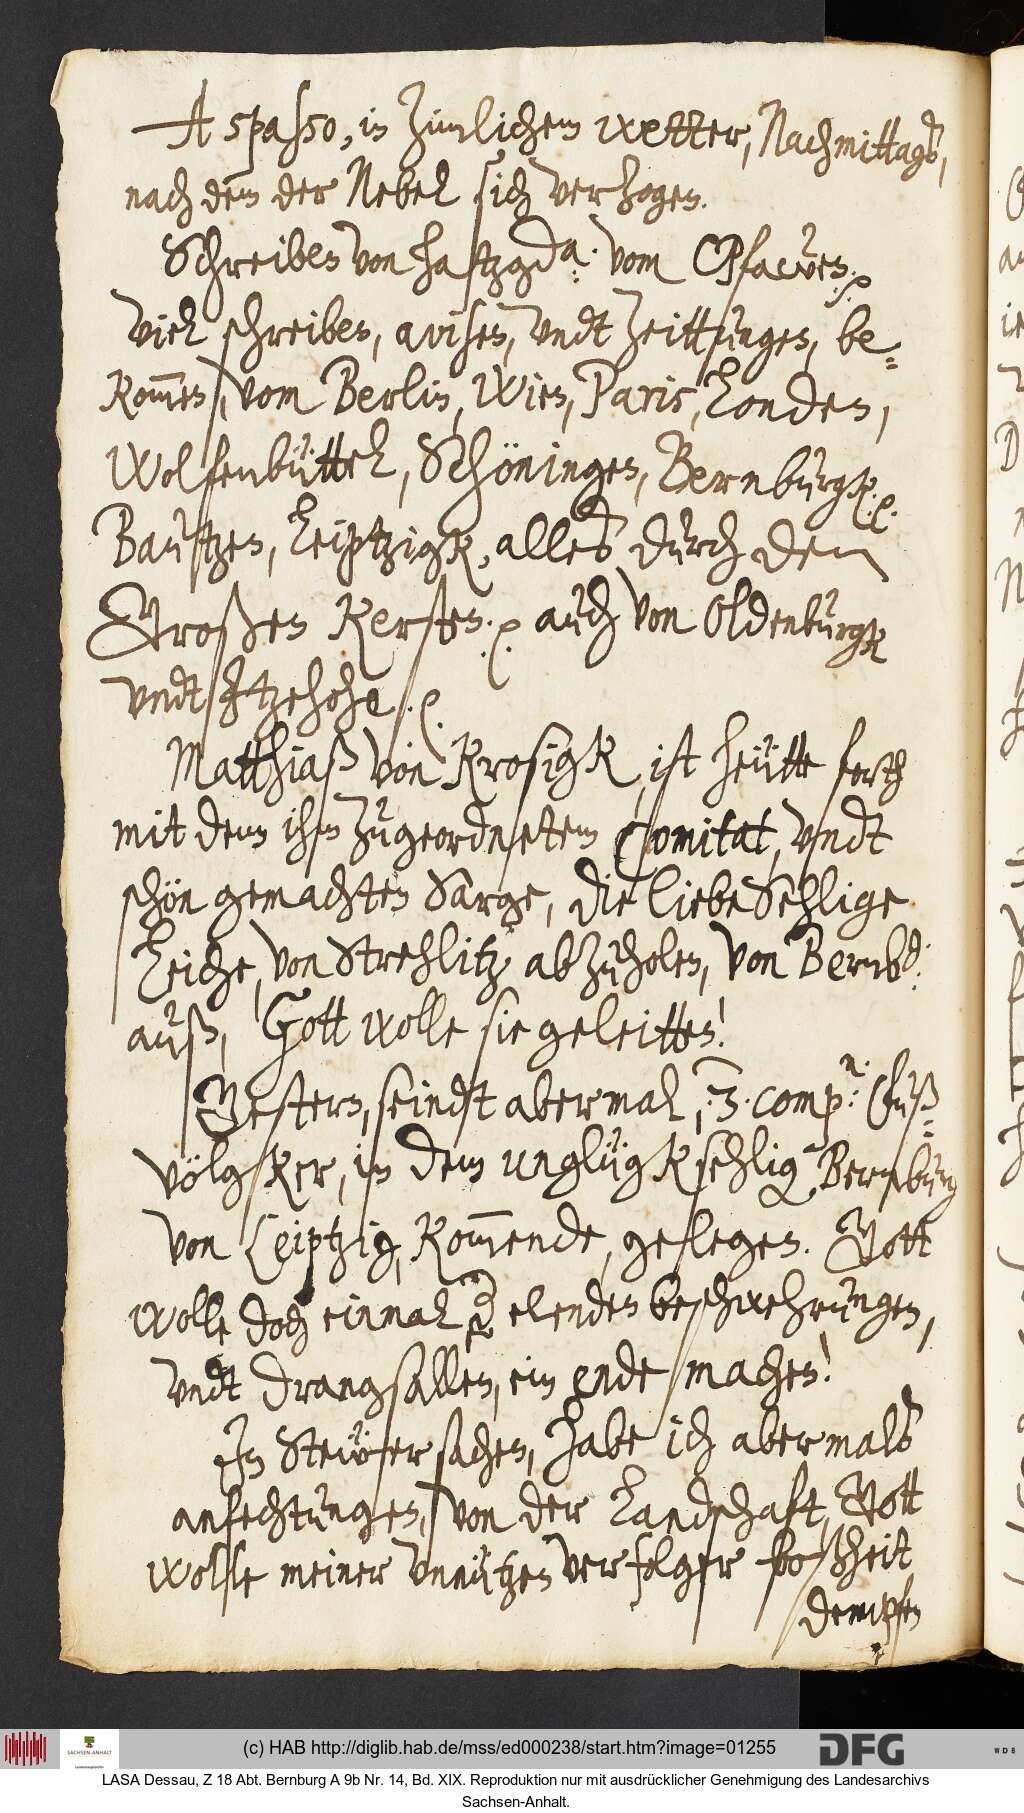 A spasso, in zimlichem wetter, Nachmittags,
nach dem der Nebel sich verzogen.
Schreiben von hatzgda: vom Pfawen.
Viel schreiben, avisen, vndt zeittungen, be-
kom̄en, vom Berlin, Wien, Paris, Londen,
Wolfenbüttel, Schöningen, Bernburgk.
Bautzen, Leiptzigk, alles durch den
Großen Kersten. auch von Oldenburgk
vndt Itzehohe.
Matthiaß von Krosigk, ist heütte forth
mit dem ihm zugeordnetem Comitat, vndt
schön gemachten Sarge, die liebe Sehlige
Leiche, von Strehlitz abzuholen, von Bernb:
auß, Gott wolle sie geleitten!
Gestern, seindt abermal, 3. comp:n Fuß-
völgker, in dem unglügksehligen Bernburg
von Leiptzig, kom̄ende, gelegen. Gott
wolle doch einmal der elenden beschwehrungen,
vndt drangsallen, ein ende machen!
In Steüer sachen, habe ich abermals
anfechtungen, von der Landschaft, Gott
wolle meiner vnnützen verfolger boßheit
dempfen
(c) HAB http://diglib.hab.de/mss/ed000238/start.htm?image=01255
SACHSEN-ANHALT
DFG
WDB
LASA Dessau, Z 18 Abt. Bernburg A 9b Nr. 14, Bd. XIX. Reproduktion nur mit ausdrücklicher Genehmigung des Landesarchivs
Sachsen-Anhalt.